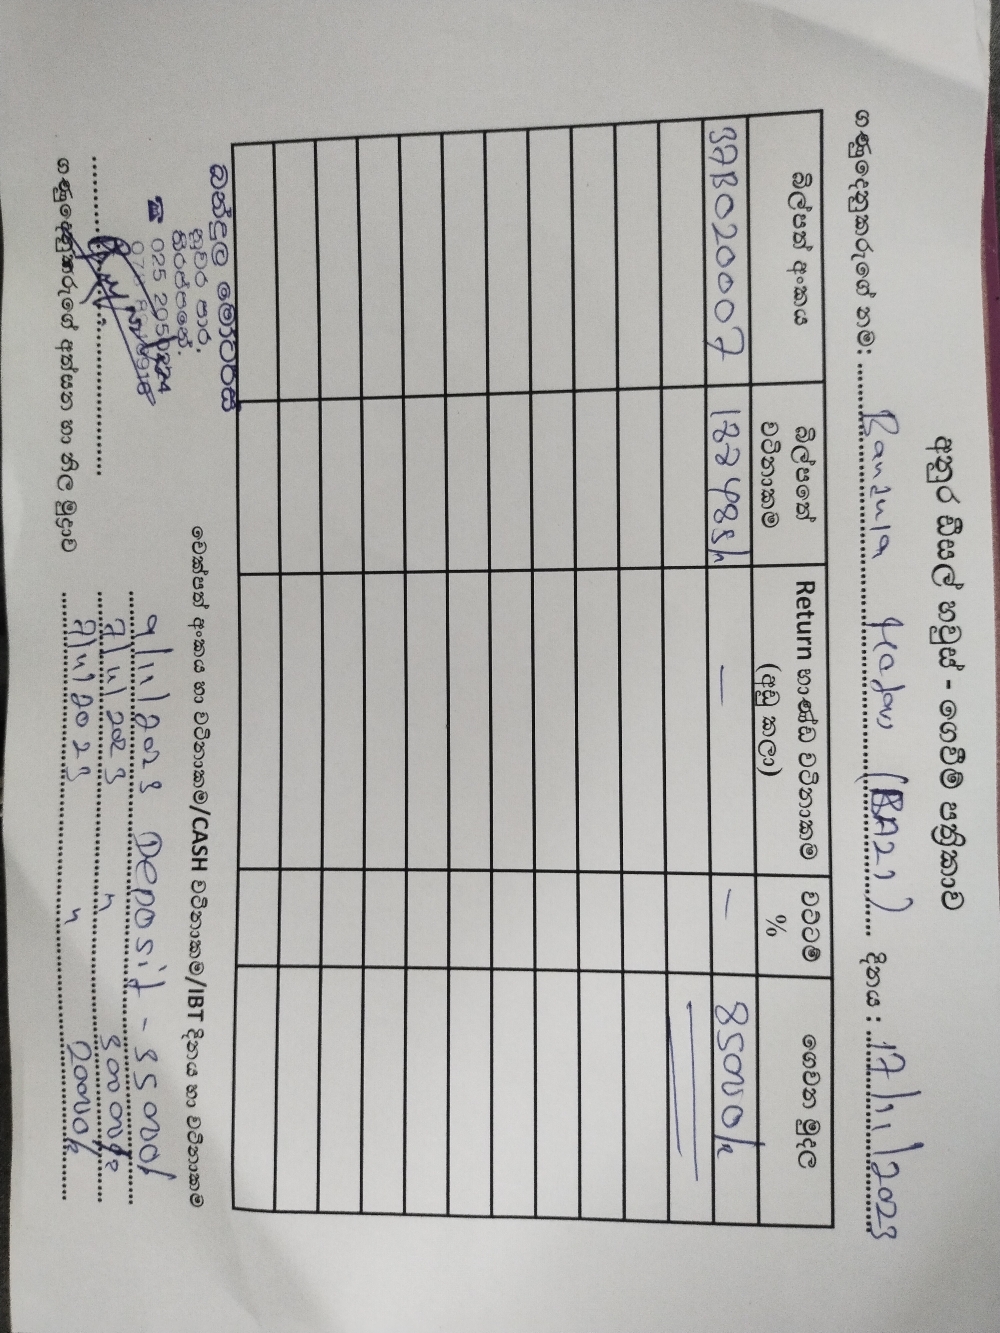 අනුර ඩීසල් හවුස් - ගෙවීම් පත්‍රිකාව
ගණුදෙනුකරුගේ නම: Bandula Motors (BA21) දිනය : 17/11/2023
බිල්පත් අංකය බිල්පතේ වටිනාකම Return භාණ්ඩ වටිනාකම (අඩු කලා) වට්ටම් % ගෙවන මුදල
37B020007 122485/= — — 85000/=
චෙක්පත් අංකය හා වටිනාකම/CASH වටිනාකම/IBT දිනය හා වටිනාකම
9/11/2023 Deposit - 35000/
9/11/2023 " 30000/=
9/11/2023 " 20000/=
බන්දුල මොටර්ස්
නුවර පාර,
තිරප්පනේ.
☎ 025 2050224
ගණුදෙනුකරුගේ අත්සන හා නිල මුද්‍රාව